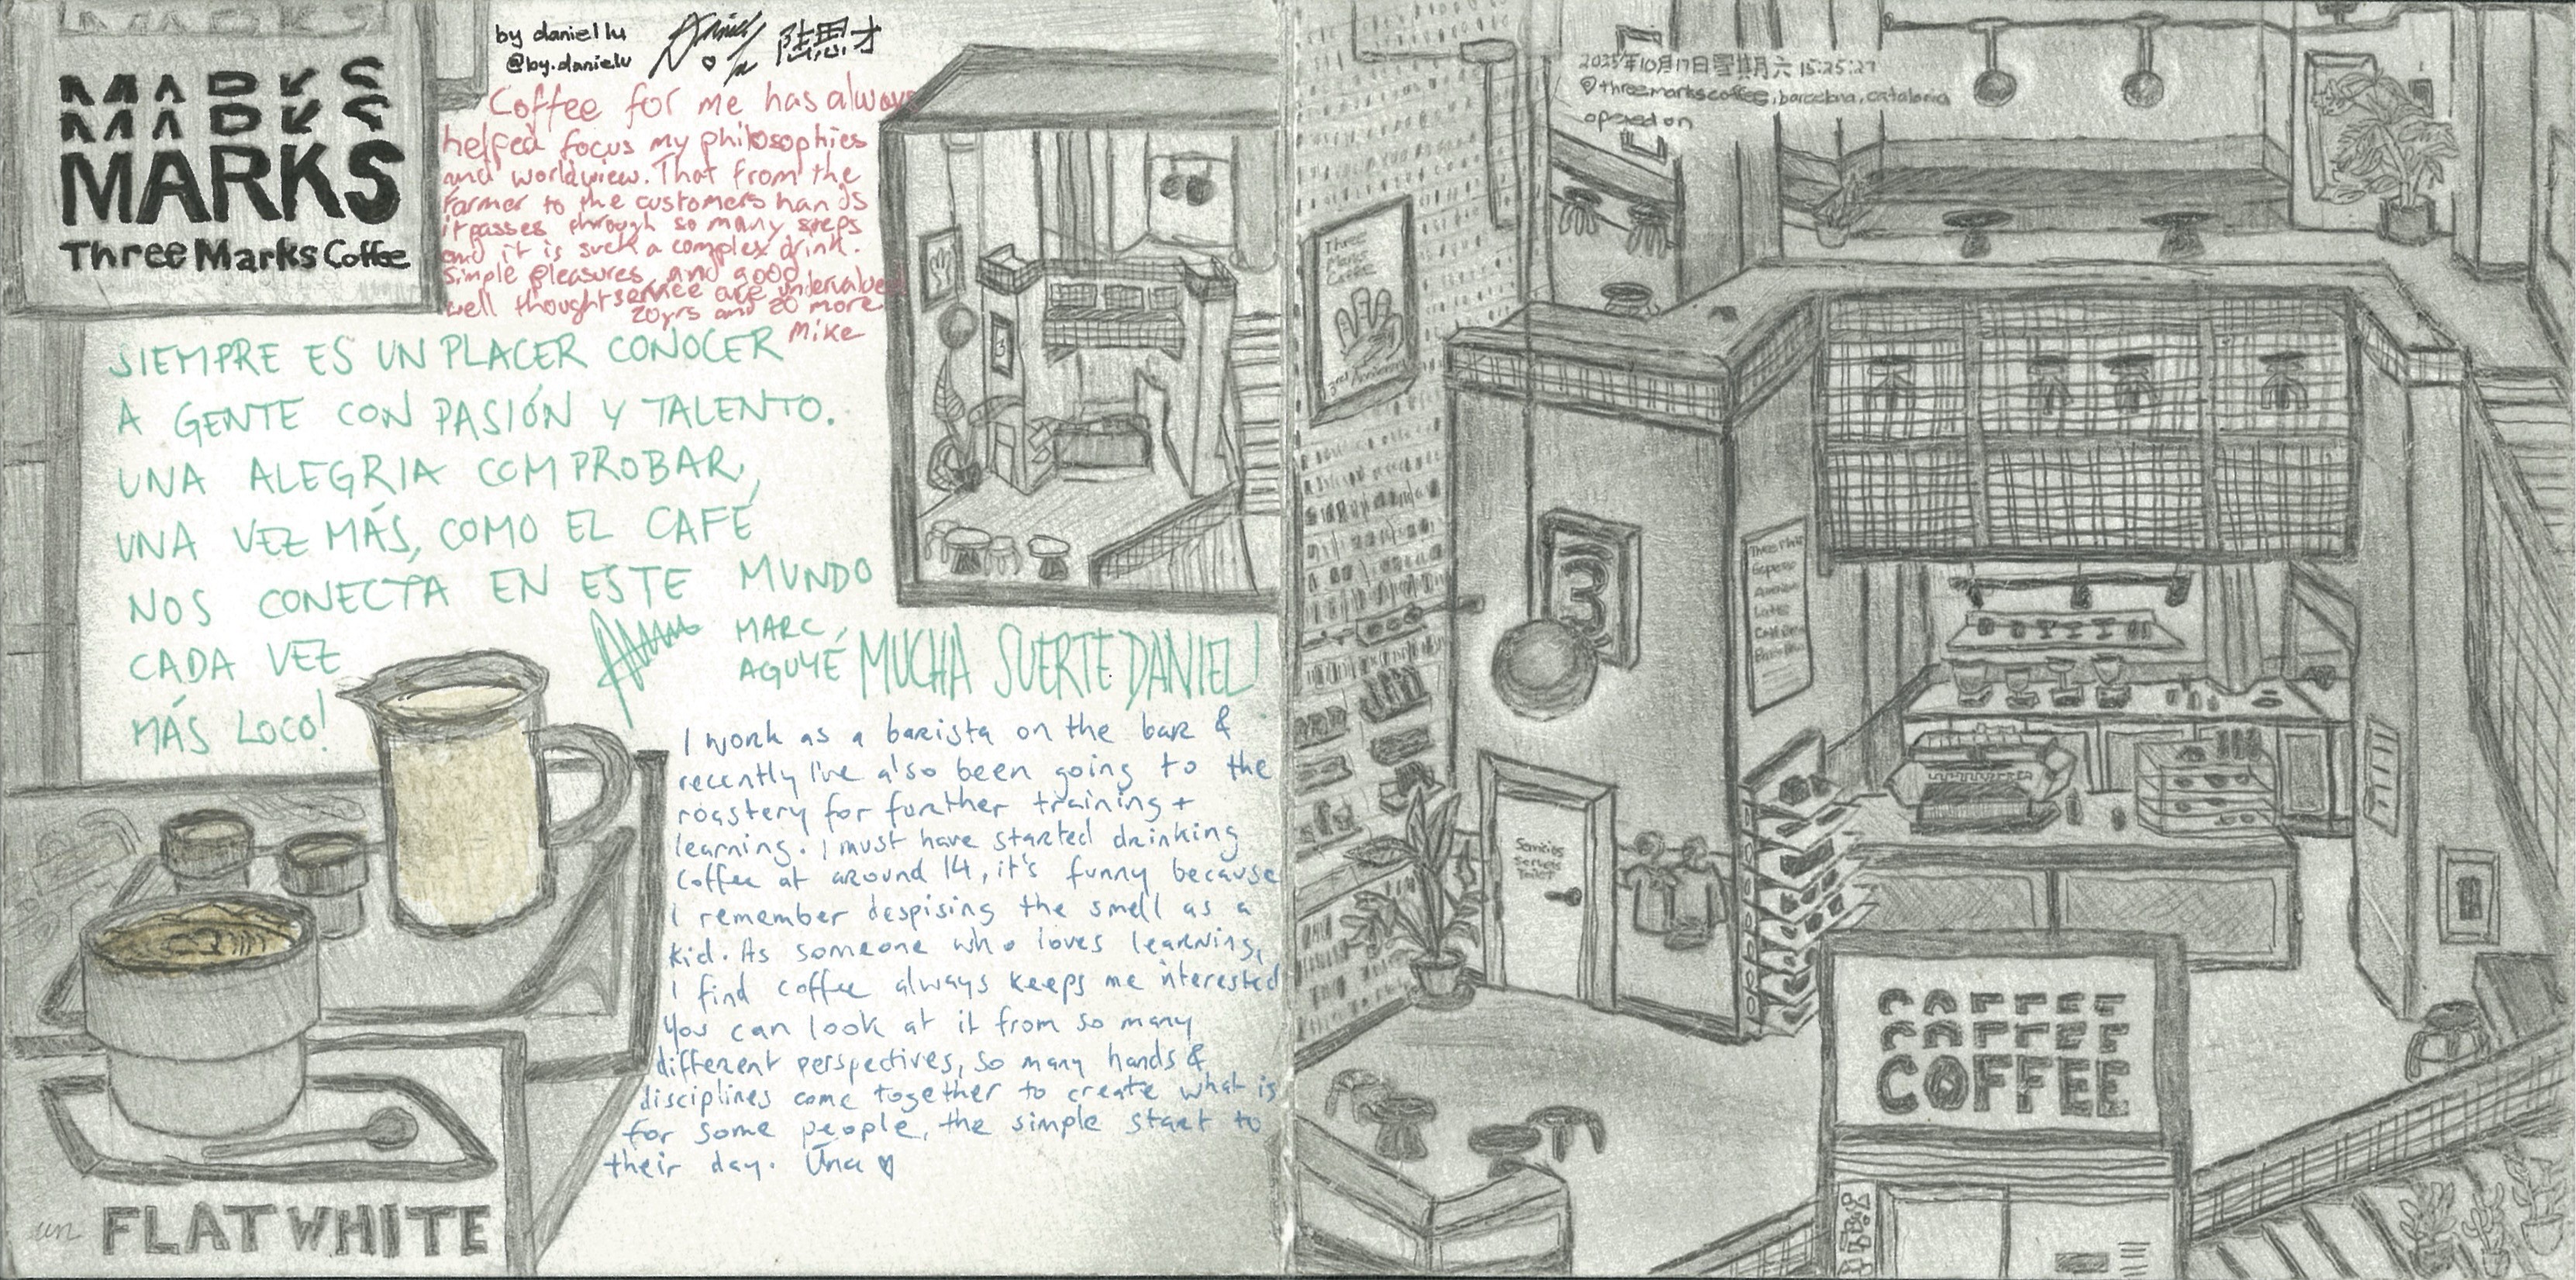 MARKS
MARKS
MARKS
Three Marks Coffee
by daniel lu
@by.danielu
陆思才
Coffee for me has always
helped focus my philosophies
and worldview. That from the
farmer to the customers hands
it passes through so many steps
and it is such a complex drink.
Simple pleasures and good
well thought service are undervalued
20yrs and 20 more
Mike
SIEMPRE ES UN PLACER CONOCER
A GENTE CON PASIÓN Y TALENTO.
UNA ALEGRIA COMPROBAR,
UNA VEZ MÁS, COMO EL CAFÉ
NOS CONECTA EN ESTE MUNDO
CADA VEZ
MÁS LOCO!
MARC
AGUYÉ
MUCHA SUERTE DANIEL!
I work as a barista on the bar &
recently I've also been going to the
roastery for further training +
learning. I must have started drinking
Coffee at around 14, it's funny because
I remember despising the smell as a
kid. As someone who loves learning,
I find coffee always keeps me interested
You can look at it from so many
different perspectives, so many hands &
disciplines come together to create what is
for some people, the simple start to
their day. Una
un FLAT WHITE
2025年10月17日星期六 15:25:27
@threemarkscoffee, barcelona, catalonia
opened on
Three
Marks
Coffee
3rd Anniversary
3
3
Three Marks
Espresso
Latte
Servicios
Serveis
Toilet
COFFEE
COFFEE
COFFEE